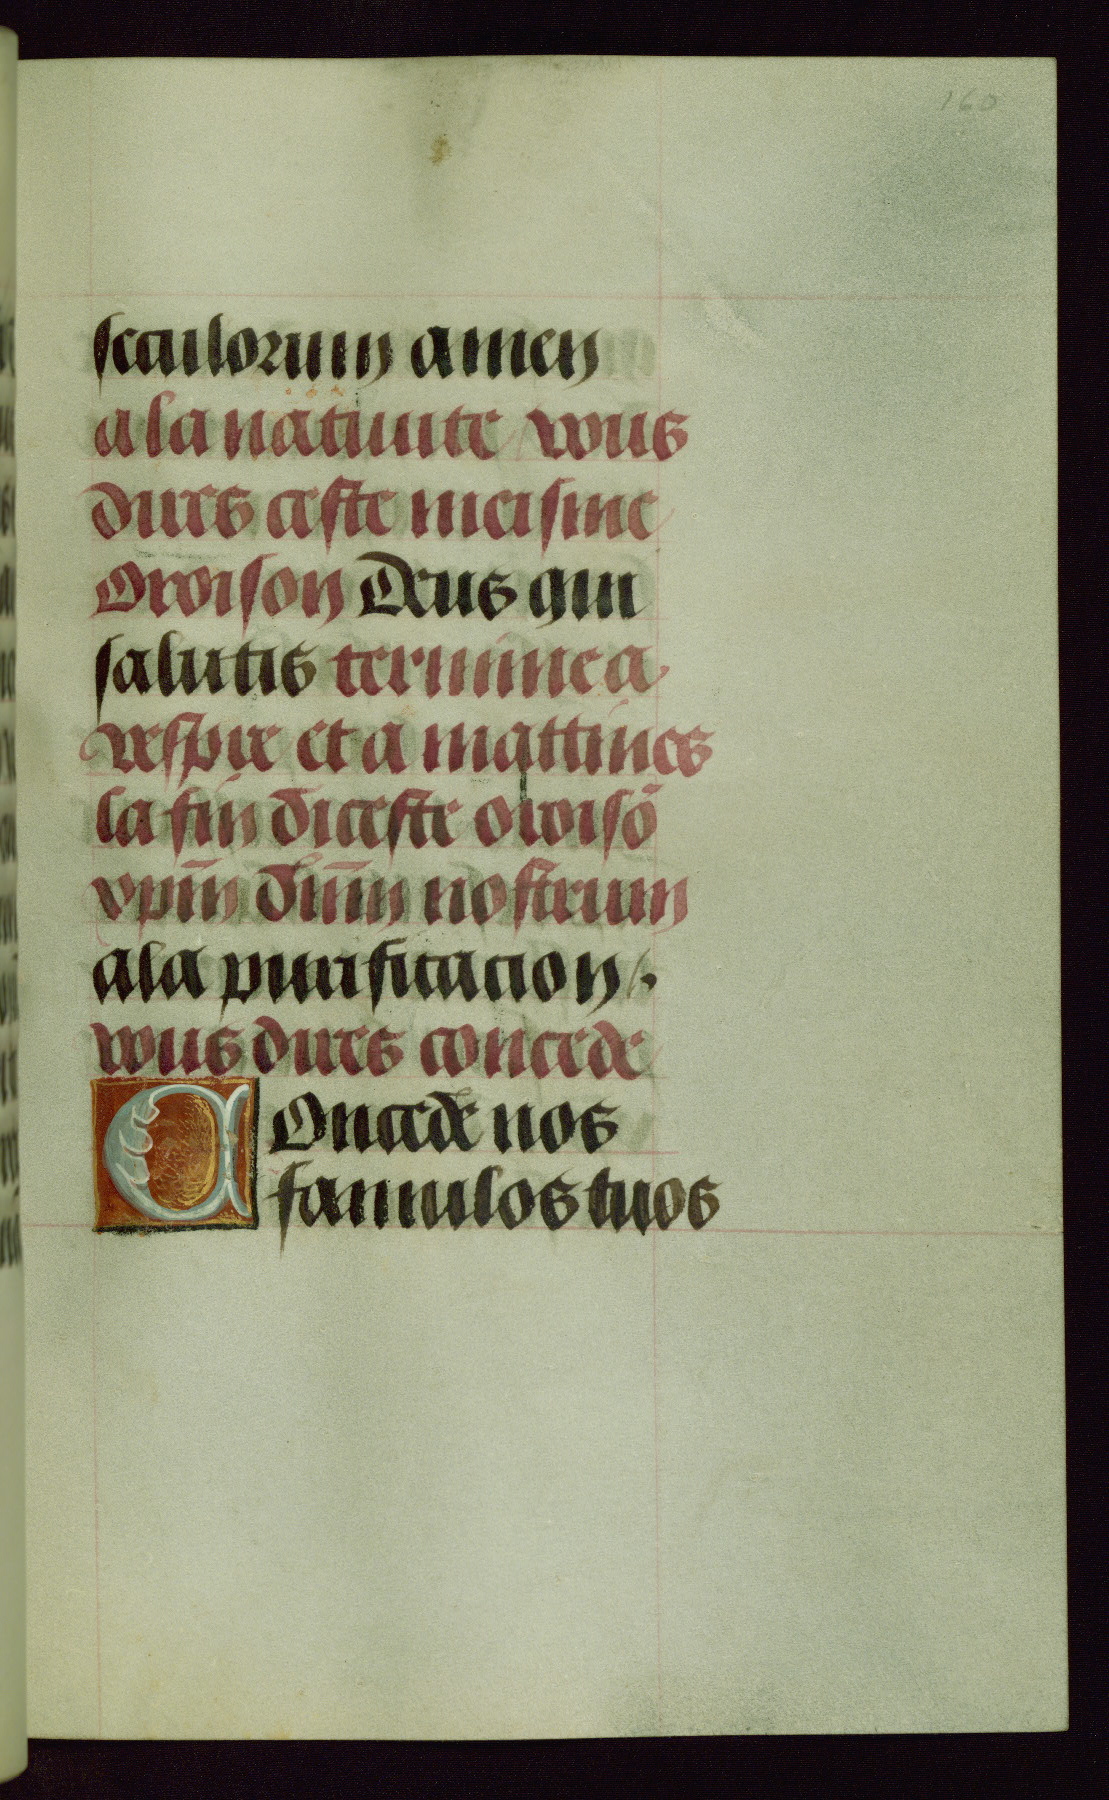 160
seculorum amen
a la natiuite vous
dires ceste meisme
Oroison Deus qui
salutis termine a
vespre et a mattines
la fin di ceste oroisō
xp̄m dn̄m nostrum
ala purification
vous dires concede
Concede nos
famulos tuos